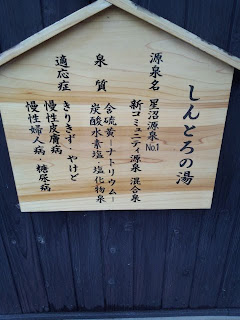 しんとろの湯
源泉名 星沼源泉No.1
新コミュニティ源泉 混合泉
泉質 含硫黄-ナトリウム-
炭酸水素塩・塩化物泉
適応症 きりきず・やけど
慢性皮膚病
慢性婦人病・糖尿病